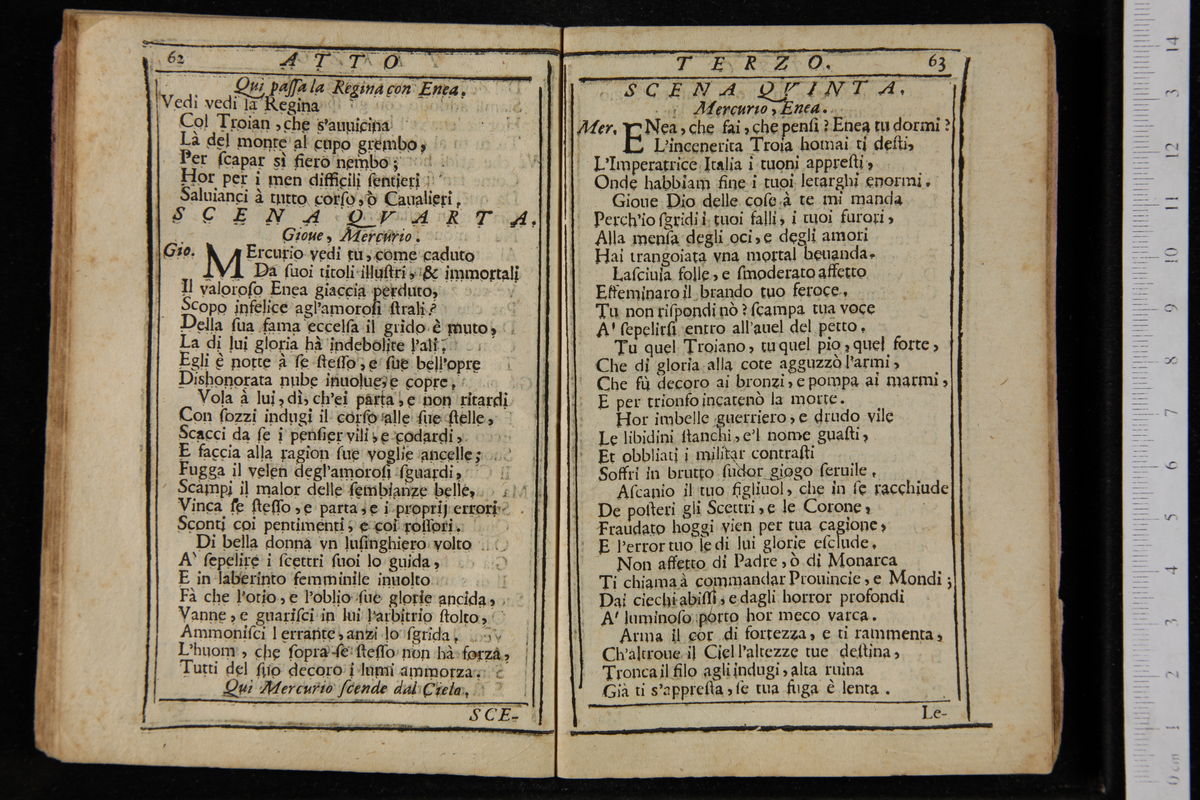 62 ATTO
Qui passa la Regina con Enea.
Vedi vedi la Regina
Col Troian, che s'auuicina
Là del monte al cupo grembo,
Per scapar sì fiero nembo;
Hor per i men difficili sentieri
Saluianci à tutto corso, ò Caualieri.
SCENA QVARTA.
Gioue, Mercurio.
Gio. MErcurio vedi tu, come caduto
Da suoi titoli illustri, & immortali
Il valoroso Enea giaccia perduto,
Scopo infelice agl'amorosi strali?
Della sua fama eccelsa il grido è muto,
La di lui gloria hà indebolite l'ali.
Egli è notte à se stesso, e sue bell'opre
Dishonorata nube inuolue, e copre.
Vola à lui, dì, ch'ei parta, e non ritardi
Con sozzi indugi il corso alle sue stelle,
Scacci da se i pensier vili, e codardi,
E faccia alla ragion sue voglie ancelle;
Fugga il velen degl'amorosi sguardi,
Scampi il malor delle sembianze belle,
Vinca se stesso, e parta, e i proprij errori
Sconti coi pentimenti, e coi rossori.
Di bella donna vn lusinghiero volto
A' sepelire i scettri suoi lo guida,
E in laberinto femminile inuolto
Fà che l'otio, e l'oblio sue glorie ancida,
Vanne, e guarisci in lui l'arbitrio stolto,
Ammonisci l errante, anzi lo sgrida.
L'huom, che sopra se stesso non hà forza,
Tutti del suo decoro i lumi ammorza.
Qui Mercurio scende dal Cielo.
SCE-
TERZO. 63
SCENA QVINTA.
Mercurio, Enea.
Mer. ENea, che fai, che pensi? Enea tu dormi?
L'incenerita Troia homai ti desti,
L'Imperatrice Italia i tuoni appresti,
Onde habbiam fine i tuoi letarghi enormi.
Gioue Dio delle cose à te mi manda
Perch'io sgridi i tuoi falli, i tuoi furori,
Alla mensa degli oci, e degli amori
Hai trangoiata vna mortal beuanda.
Lasciuia folle, e smoderato affetto
Effeminaro il brando tuo feroce.
Tu non rispondi nò? scampa tua voce
A' sepelirsi entro all'auel del petto.
Tu quel Troiano, tu quel pio, quel forte,
Che di gloria alla cote agguzzò l'armi,
Che fù decoro ai bronzi, e pompa ai marmi,
E per trionfo incatenò la morte.
Hor imbelle guerriero, e drudo vile
Le libidini stanchi, e'l nome guasti,
Et obbliati i militar contrasti
Soffri in brutto sudor giogo seruile.
Ascanio il tuo figliuol, che in se racchiude
De posteri gli Scettri, e le Corone,
Fraudato hoggi vien per tua cagione,
E l'error tuo le di lui glorie esclude.
Non affetto di Padre, ò di Monarca
Ti chiama à commandar Prouincie, e Mondi;
Dai ciechi abissi, e dagli horror profondi
A' luminoso porto hor meco varca.
Arma il cor di fortezza, e ti rammenta,
Ch'altroue il Ciel l'altezze tue destina,
Tronca il filo agli indugi, alta ruina
Già ti s'appresta, se tua fuga è lenta.
Le-
14
13
12
11
10
9
8
7
6
5
4
3
2
1
0 cm